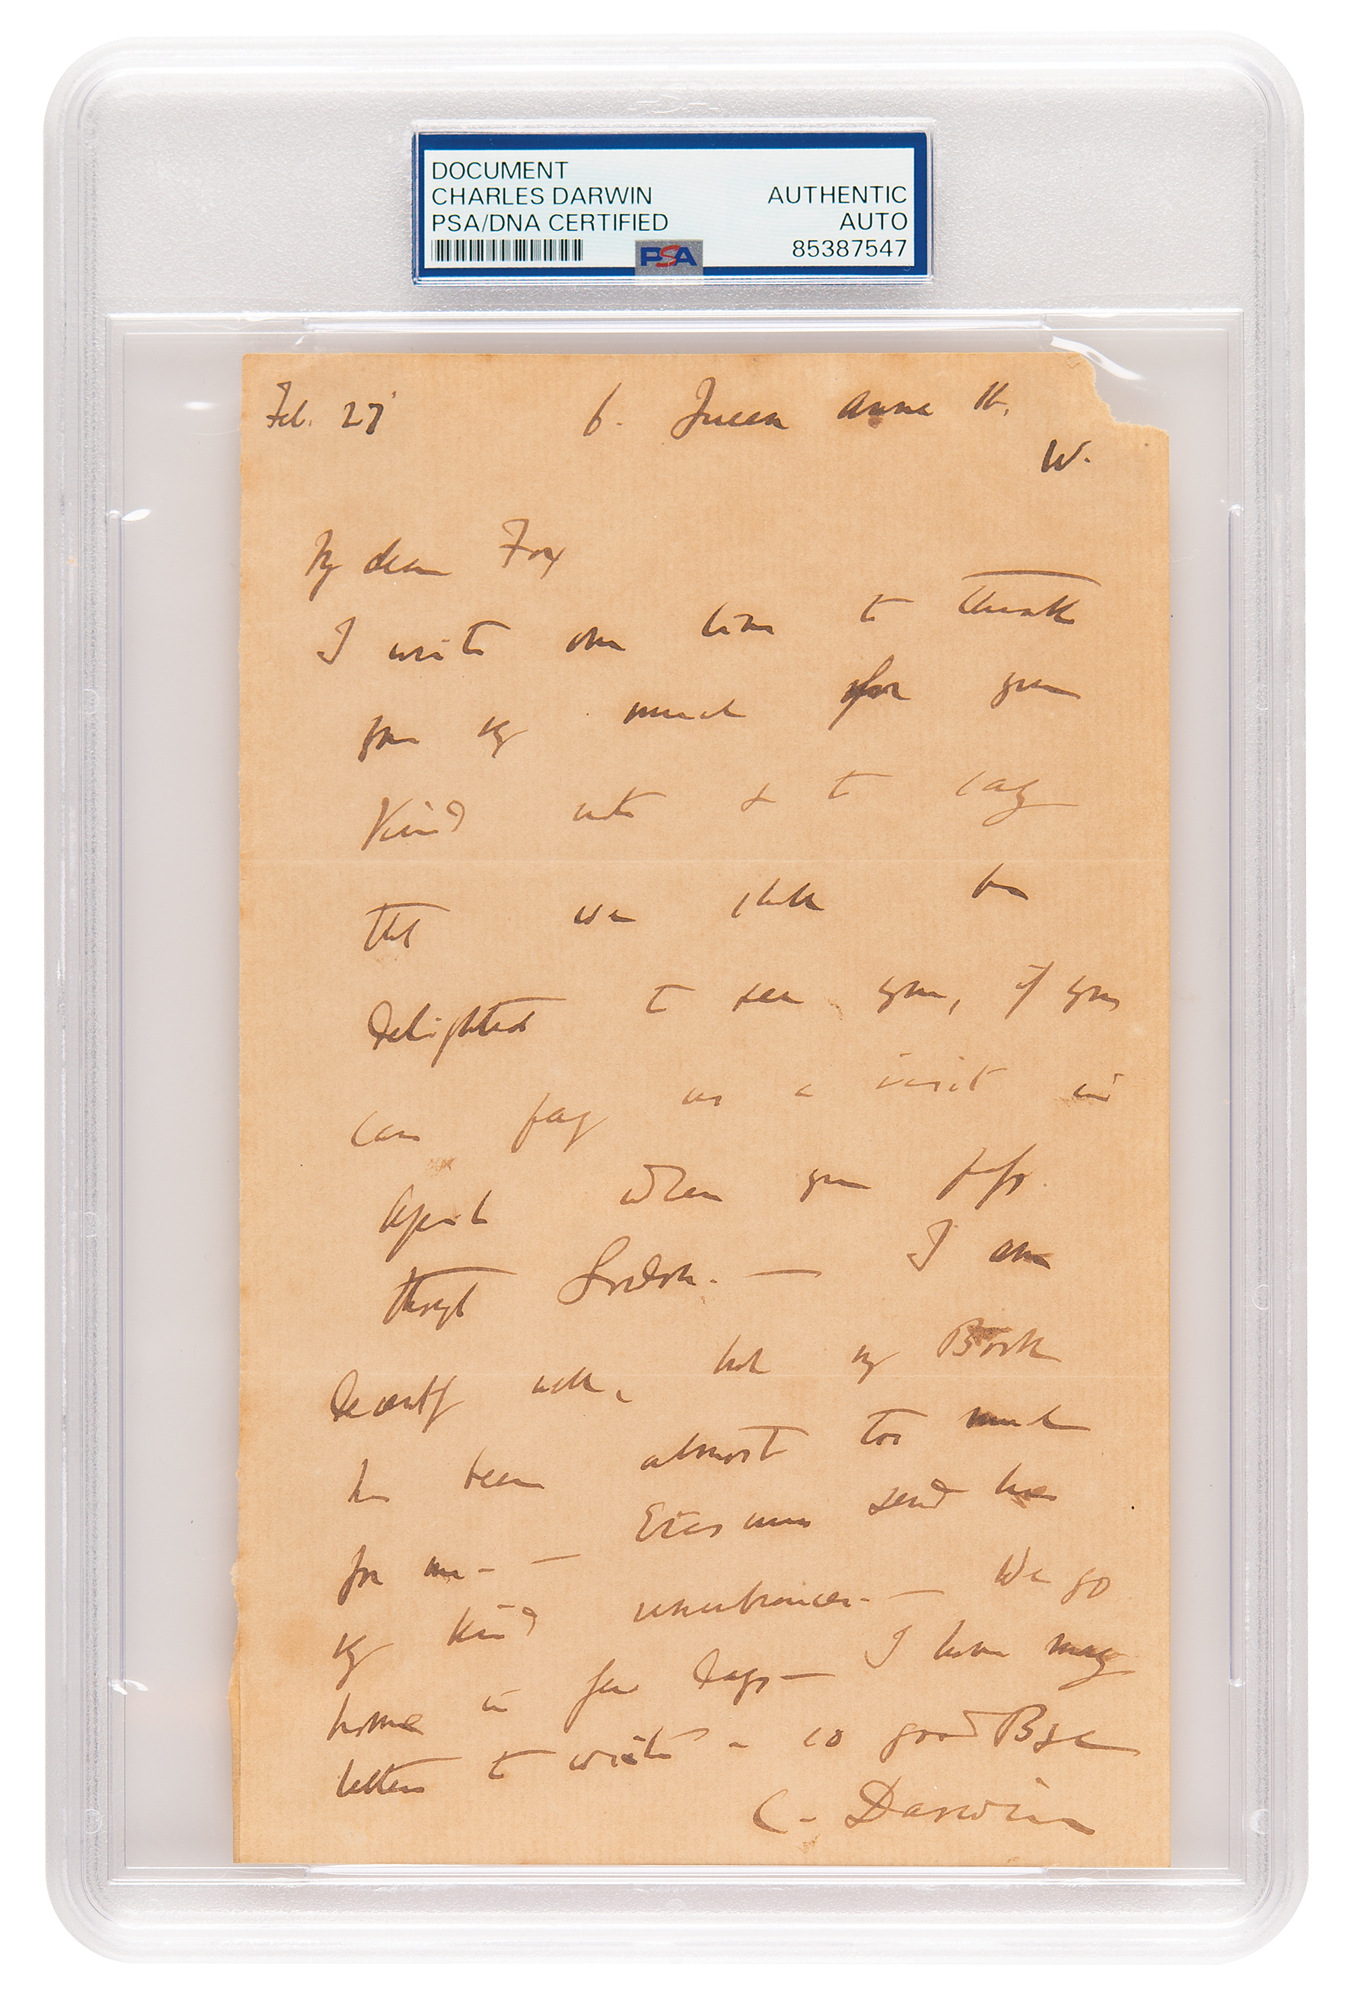 DOCUMENT
CHARLES DARWIN
PSA/DNA CERTIFIED
AUTHENTIC
AUTO
85387547
PSA
Feb. 27 6. Queen Anne St.
W.
My dear Fox
I write one line to thank
you very much for your
kind note & to say
that we shall be
delighted to see you, if you
can pay us a visit in
April when you pass
through London. — I am
decently well, but my Book
has been almost too much
for me. — Erasmus sends his
very kind remembrances. — We go
home in few days — I have many
letters to write — so good Bye
C. Darwin